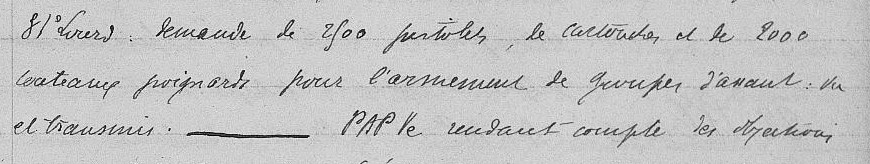 81° Lourd : demande de 2500 pistolets, de cartouches et de 2000
couteaux poignards pour l'armement de groupes d'assaut : vu
et transmis. ——— PAP Ve rendant compte des opérations